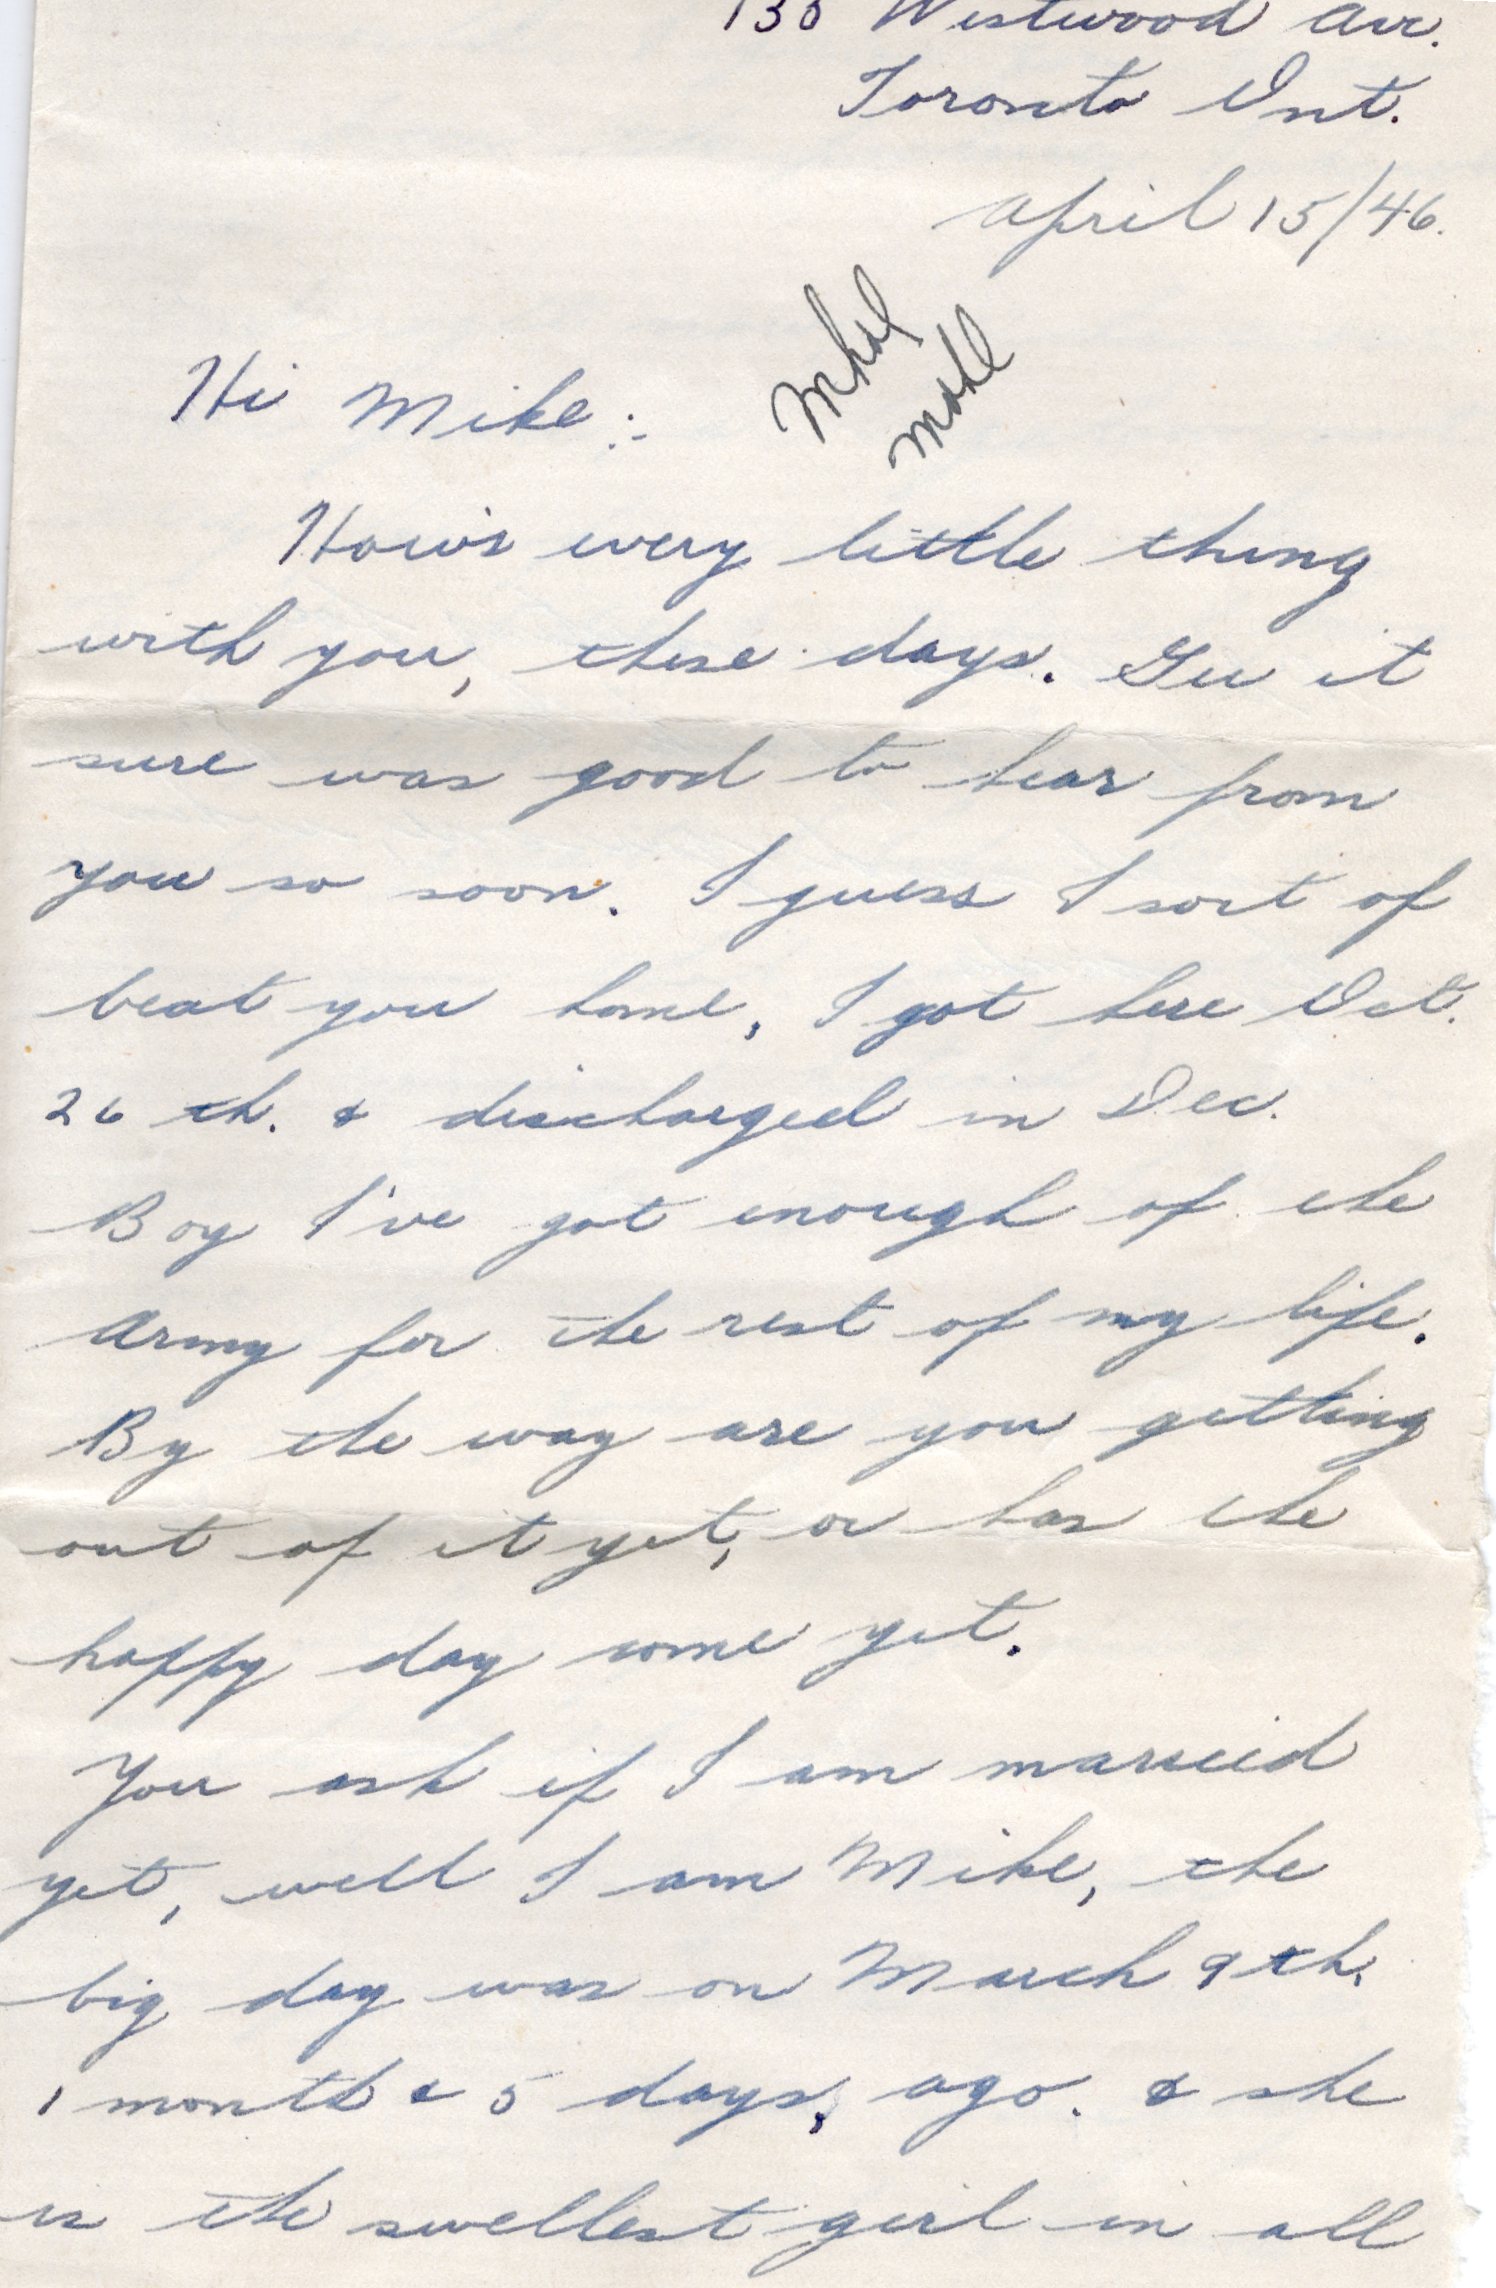 Westwood Ave.
Toronto Ont.
April 15/46.
Hi Mike:-
How's every little thing
with you, these days. Gee it
sure was good to hear from
you so soon. I guess I sort of
beat you home, I got here Oct.
26 th. & discharged in Dec.
Boy I've got enough of the
Army for the rest of my life.
By the way are you getting
out of it yet, or has the
happy day come yet.
You ask if I am married
yet, well I am Mike, the
big day was on March 9th.
1 month & 5 days, ago. & she
is the swellest girl in all